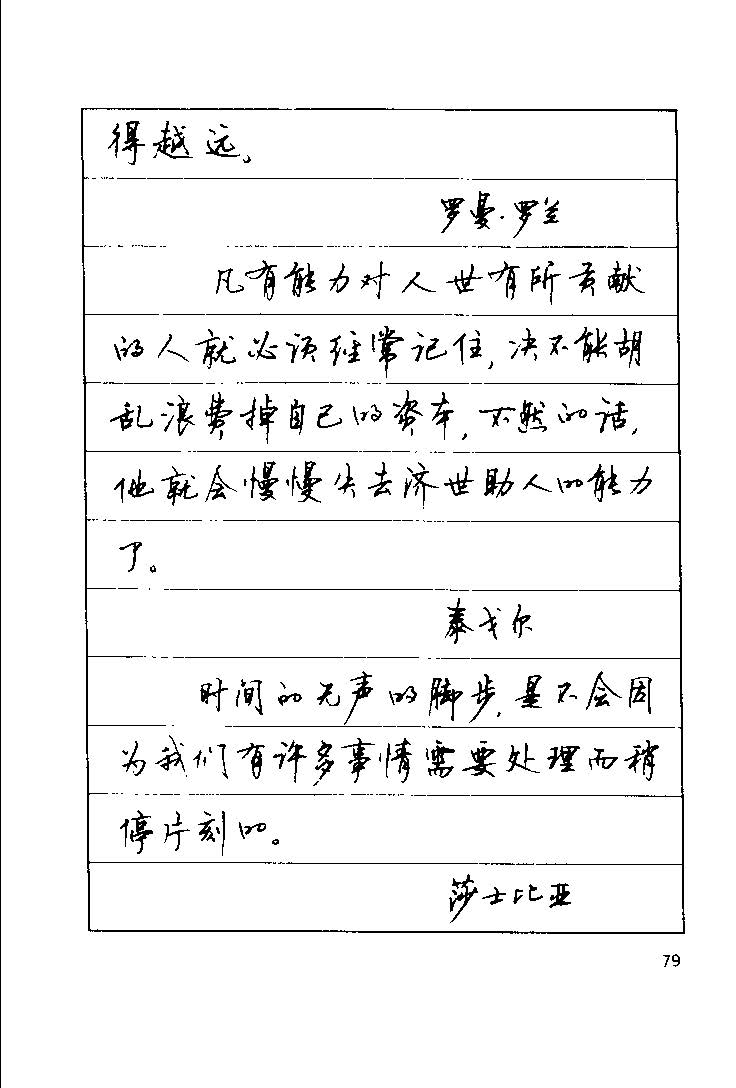 得越远。
罗曼·罗兰
凡有能力对人世有所贡献
的人就必须经常记住,决不能胡
乱浪费掉自己的资本,不然的话,
他就会慢慢失去济世助人的能力
了。
泰戈尔
时间的无声的脚步,是不会因
为我们有许多事情需要处理而稍
停片刻的。
莎士比亚
79